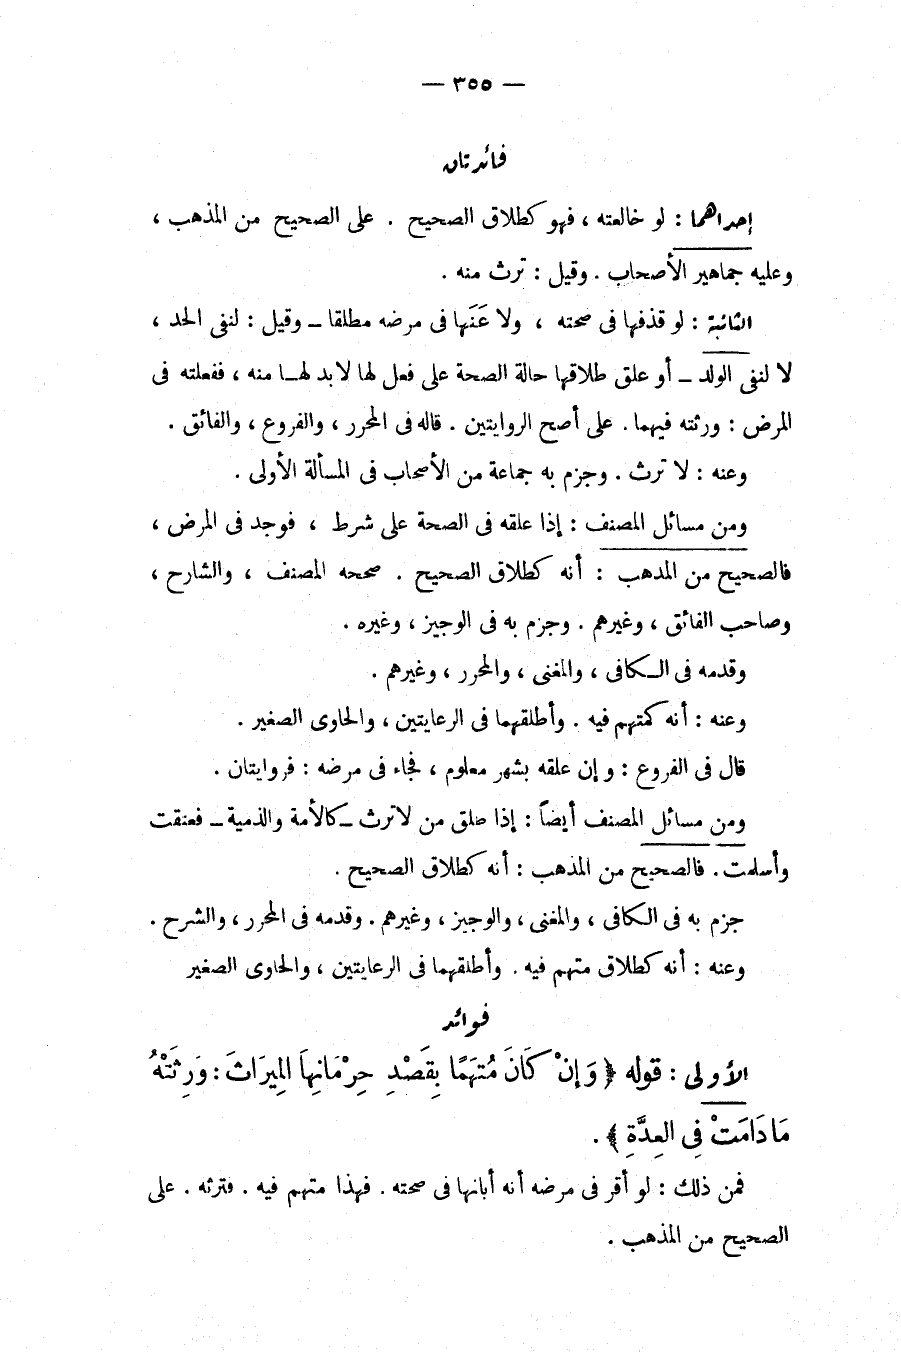 — ٣٥٥ —
فائدتان
إحداهما : لو خالعته ، فهو كطلاق الصحيح . على الصحيح من المذهب ،
وعليه جماهير الأصحاب . وقيل : ترث منه .
الثانية : لو قذفها فى صحته ، ولا عَنَها فى مرضه مطلقا ــ وقيل : لنفى الحد ،
لا لنفى الولد ــ أو علق طلاقها حالة الصحة على فعل لها لابد لهـا منه ، ففعلته فى
المرض : ورثته فيهما . على أصح الروايتين . قاله فى المحرر ، والفروع ، والفائق .
وعنه : لا ترث . وجزم به جماعة من الأصحاب فى المسألة الأولى .
ومن مسائل المصنف : إذا علقه فى الصحة على شرط ، فوجد فى المرض ،
فالصحيح من المذهب : أنه كطلاق الصحيح . صححه المصنف ، والشارح ،
وصاحب الفائق ، وغيرهم . وجزم به فى الوجيز ، وغيره .
وقدمه فى الـكافى ، والمغنى ، والمحرر ، وغيرهم .
وعنه : أنه كمتهم فيه . وأطلقهما فى الرعايتين ، والحاوى الصغير .
قال فى الفروع : وإن علقه بشهر معلوم ، فجاء فى مرضه : فروايتان .
ومن مسائل المصنف أيضاً : إذا طلق من لاترث ــ كالأمة والذمية ــ فعتقت
وأسلمت . فالصحيح من المذهب : أنه كطلاق الصحيح .
جزم به فى الـكافى ، والمغنى ، والوجيز ، وغيرهم . وقدمه فى المحرر ، والشرح .
وعنه : أنه كطلاق متهم فيه . وأطلقهما فى الرعايتين ، والحاوى الصغير
فوائد
الأولى : قوله ﴿ وَإِنْ كَانَ مُتَهَمًا بِقَصْدِ حِرْمَانِهَا المِيرَاثَ : وَرِثَتْهُ
مَا دَامَتْ فِى العِدَّةِ ﴾ .
فمن ذلك : لو أقر فى مرضه أنه أبانها فى صحته . فهذا متهم فيه . فترثه . على
الصحيح من المذهب .